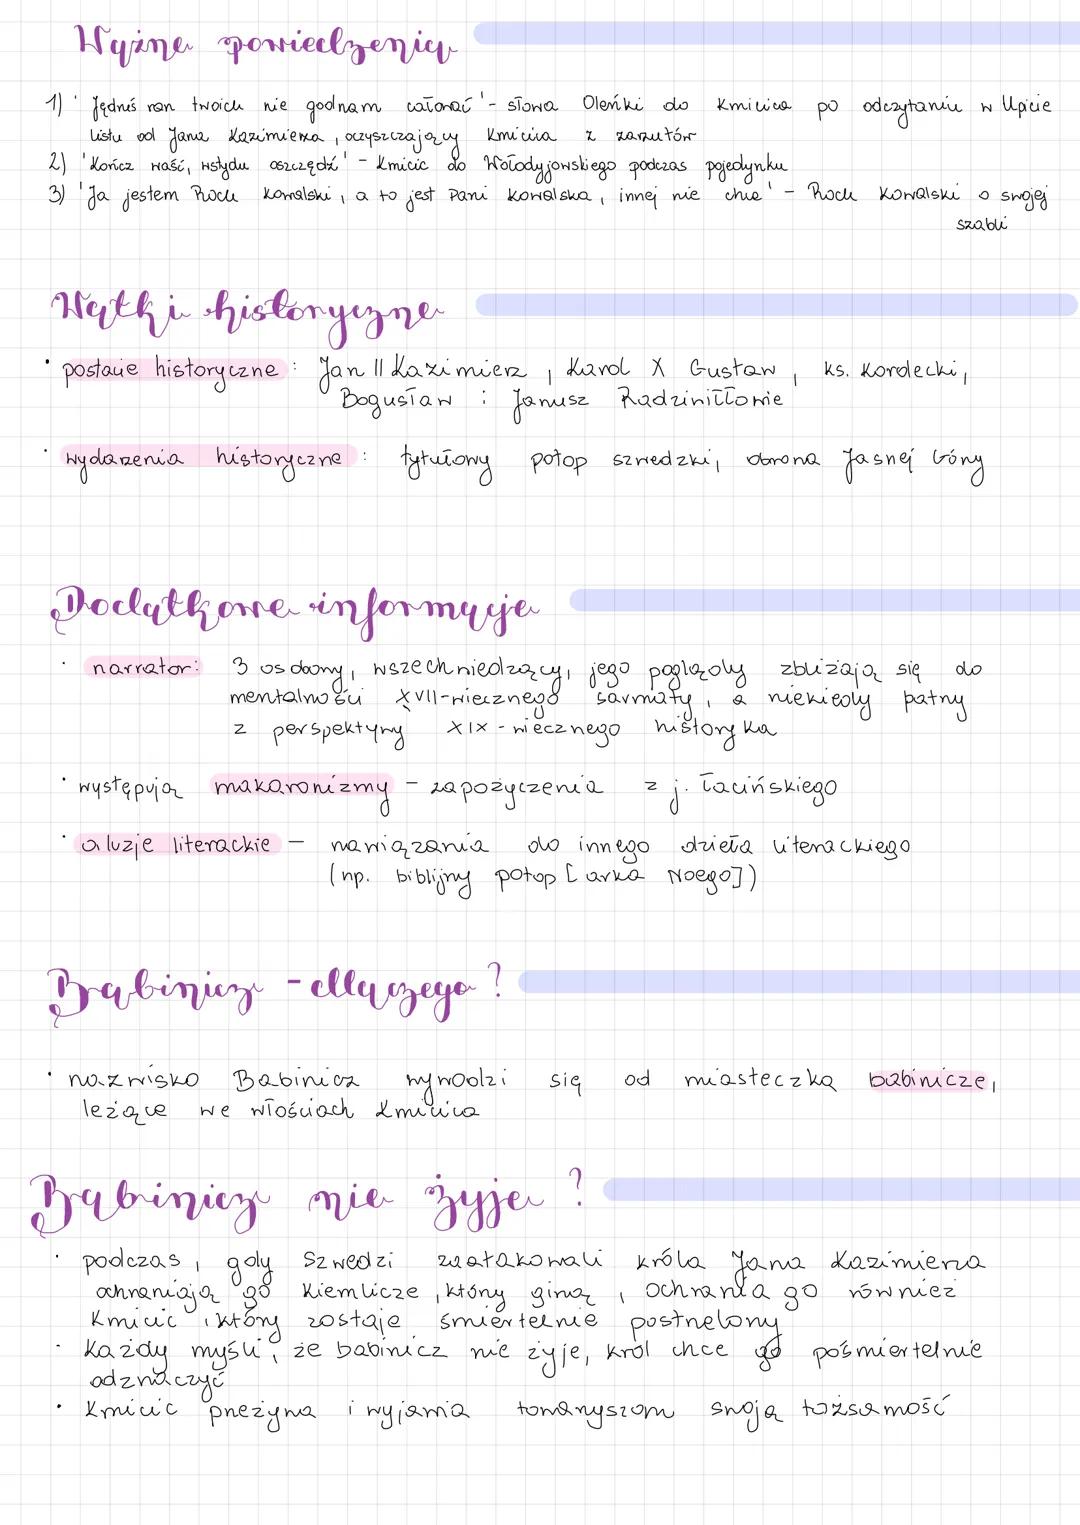 Ważne powiedzenia
1) 'Jędruś ran twoich nie godnam całować' - słowa Oleńki do Kmicica po odczytaniu w Upicie
listu od Jana Kazimierza, oczyszczający Kmicica z zarzutów
2) 'Kończ waść, wstydu oszczędź' - Kmicic do Wołodyjowskiego podczas pojedynku
3) 'Ja jestem Roch Kowalski, a to jest Pani Kowalska, innej nie chce' - Roch Kowalski o swojej
szabli
Wątki historyczne
• postacie historyczne: Jan II Kazimierz, Karol X Gustaw, ks. Kordecki,
Bogusław i Janusz Radziwiłłowie
• wydarzenia historyczne: tytułowy potop szwedzki, obrona Jasnej Góry
Dodatkowe informacje
• narrator: 3 osobowy, wszechwiedzący, jego poglądy zbliżają się do
mentalności XVII-wiecznego sarmaty, a niekiedy patrzy
z perspektywy XIX-wiecznego historyka
• występują makaronizmy - zapożyczenia z j. łacińskiego
• aluzje literackie - nawiązania do innego dzieła literackiego
(np. biblijny potop [arka Noego])
Babinicz - dlaczego?
• nazwisko Babinicz wywodzi się od miasteczka babinicze,
leżące we włościach Kmicica
Babinicz nie żyje?
• podczas, gdy Szwedzi zaatakowali króla Jana Kazimierza
ochraniają go Kiemlicze, którzy giną, ochrania go również
Kmicic, który zostaje śmiertelnie postrzelony
• każdy myśli, że babinicz nie żyje, król chce go pośmiertelnie
odznaczyć
• Kmicic przeżywa i wyjawia towarzyszom swoją tożsamość